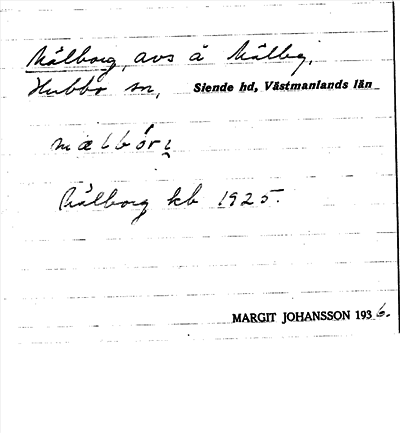 Målborg, avs å Målby,
Hubbo sn, Siende hd, Västmanlands län
Målborg kb 1925.
MARGIT JOHANSSON 1936.